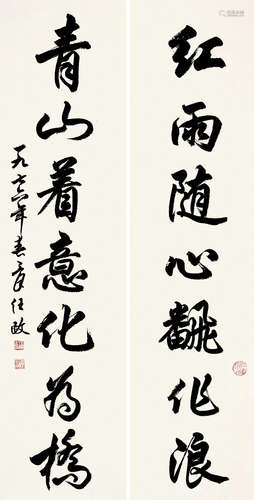 红雨随心翻作浪
青山着意化为橋
一九七六年春月任政